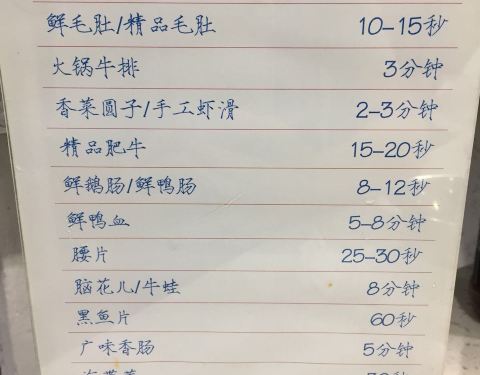 鲜毛肚/精品毛肚 10-15秒
火锅牛排 3分钟
香菜圆子/手工虾滑 2-3分钟
精品肥牛 15-20秒
鲜鹅肠/鲜鸭肠 8-12秒
鲜鸭血 5-8分钟
腰片 25-30秒
脑花儿/牛蛙 8分钟
黑鱼片 60秒
广味香肠 5分钟